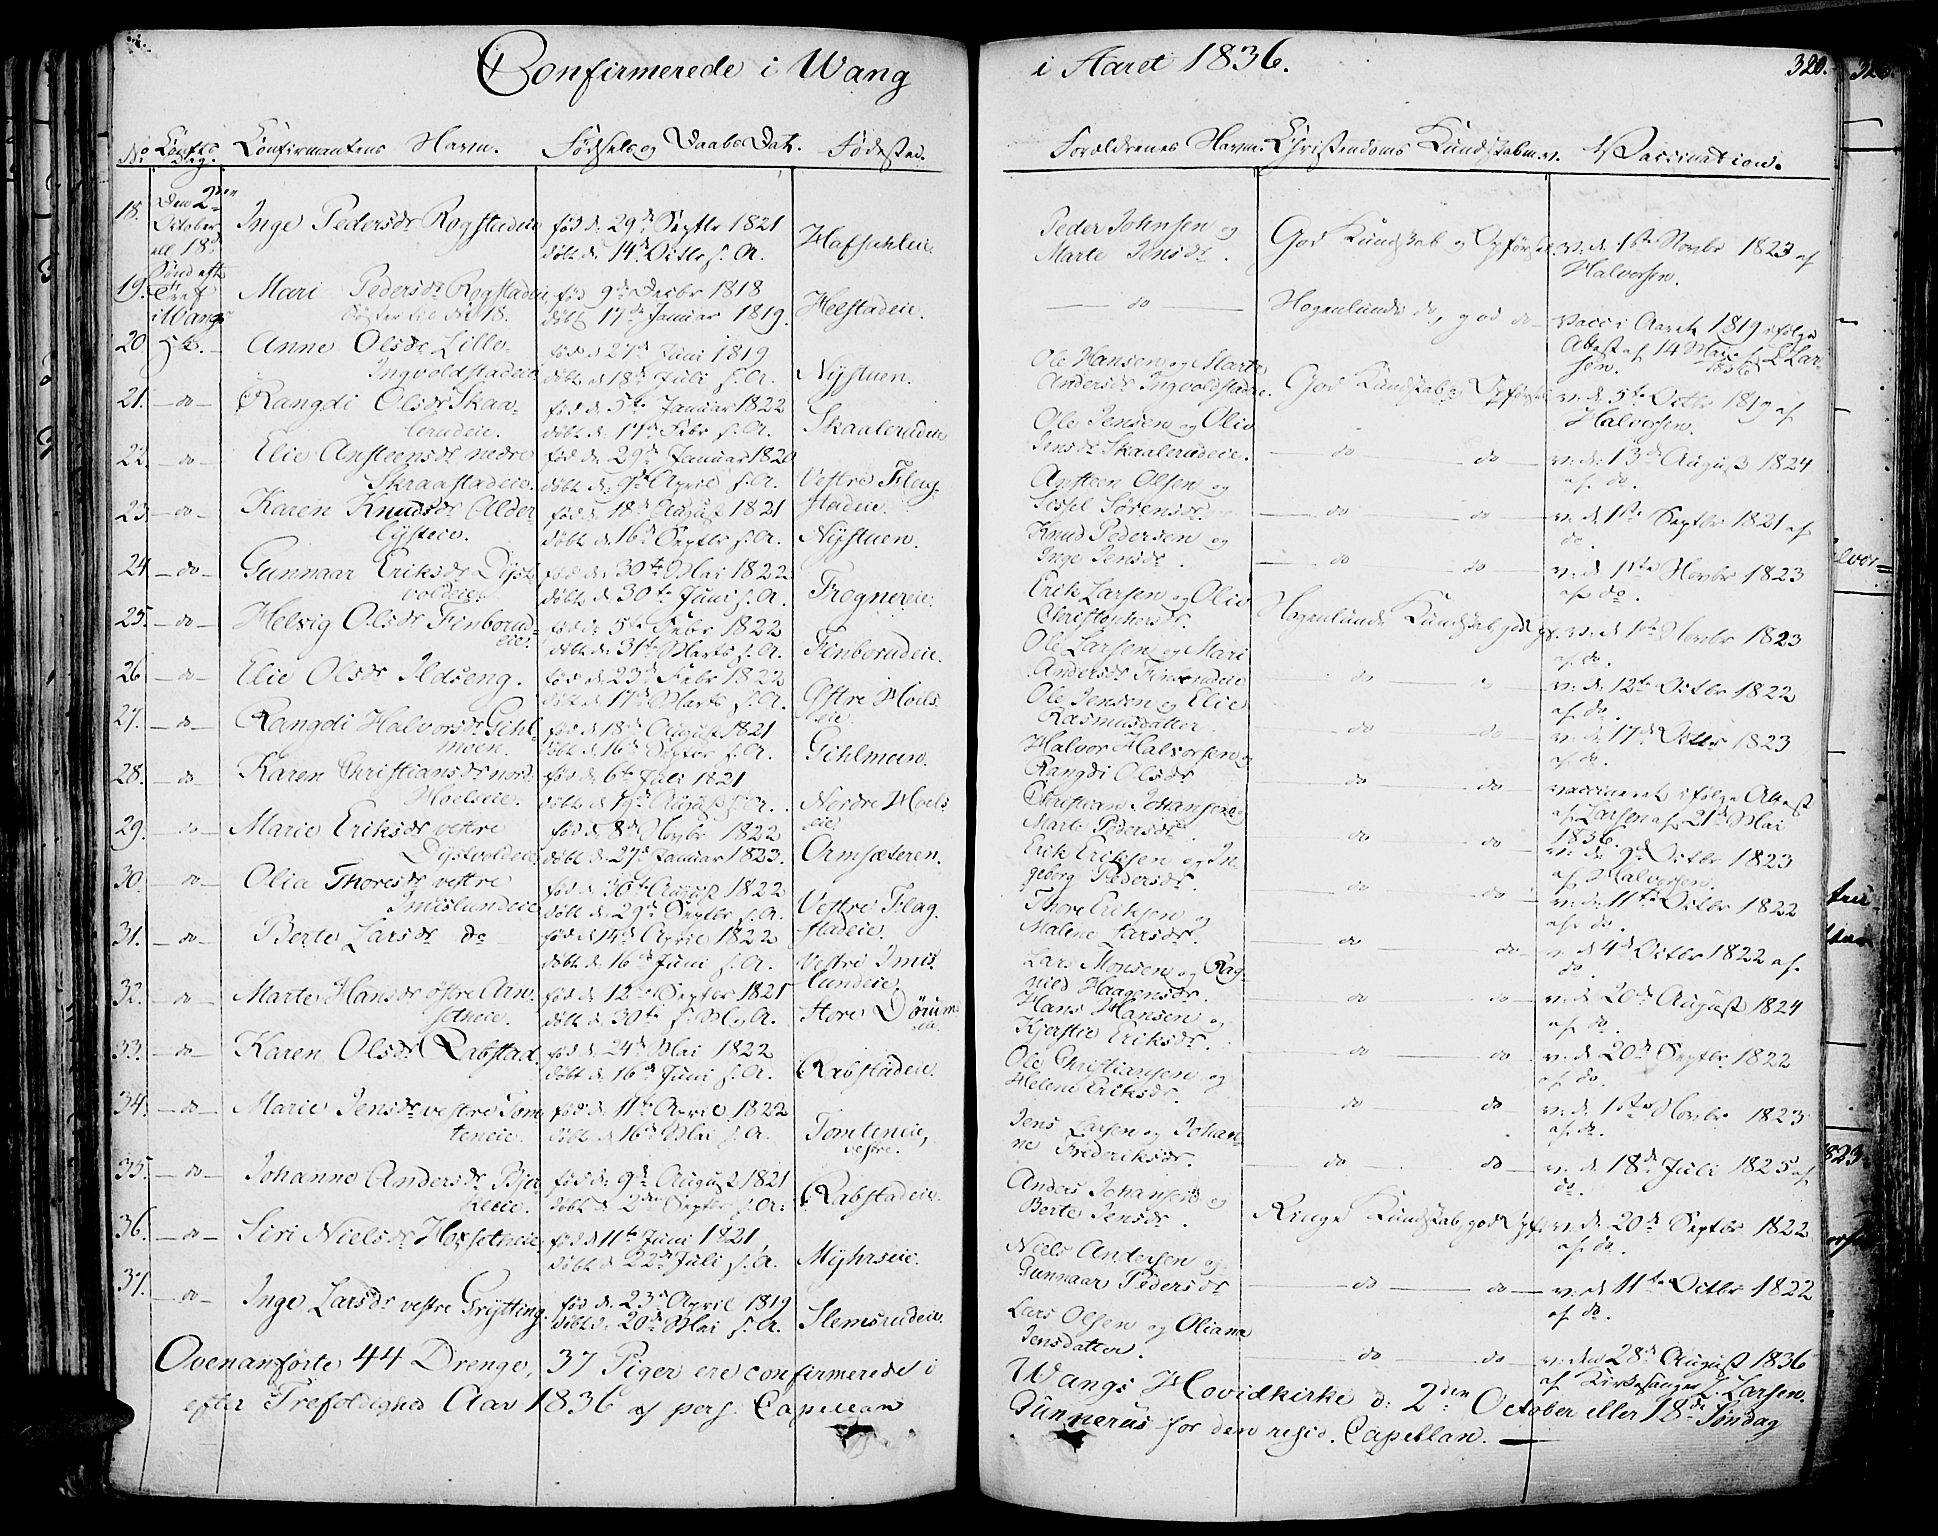 Confirmerede i Wang i Aaret 1836. 320.
No Confirmantens Navn. Fødsels og Daabs Dat. Fødested. Forældrenes Navn. Christendoms Kundskab m.v. Vaccination.
18. Den 2den October ell 18de Inge Pedersdr Rogstadeie
fød d. 29de Septbr 1821
døbt d. 14de Octbr s. A.
Peder Johnsen og
Marte Jensdr.
God Kundskab og Opførsel
v. d. 1ste Novbr 1823 af
Halvorsen.
19. Mari Pedersdr Rogstadeie
Søster til No 18.
fød 9de Decbr 1818
døbt 17de Januar 1819.
Heestadeie.
— do —
Nogenlunde do, god do
vacc i Aaret 1819 ifølge
Attest af 14 Mai 1836 f. L. Lar-
sen.
20. Anne Olsdr Lille-
Ingvoldstadeie
fød d. 27de Juni 1819
døbt d. 18de Juli s. A.
Nystuen.
Ole Hansen og Marte
Andersdr Ingvoldstadeie
God Kundskab og Opførsel
v. d. 5te Octbr 1819 af
Halvorsen.
21. — do — Rangdi Olsdr Skaa-
lerudeie.
fød d. 5te Januar 1822
døbt d. 17de Febr s. A.
Skaalerudeie
Ole Jensen og Olia
Jensdr Skaalerudeie.
— do — do —
v. d. 13de August 1824
af do.
22. — do — Elie Ansteensdr nedre
Skraastadeie.
fød d. 29de Januar 1820
døbt d. 9de April s. A.
Vestre Flag-
stadeie.
Ansteen Olsen og
Sissel Sørensdr.
— do — do —
v. d. 1ste Septbr 1821 af
do.
23. — do — Karen Knudsdr Alder-
lysteie.
fød d. 18de August 1821
døbt d. 16de Septbr s. A.
Nystuen
Knud Pedersen og
Inge Jensdr.
— do — do —
v. d. 1ste Novbr 1823
af do.
24. — do — Gunnaar Eriksdr Dyst-
voldeie.
fød d. 30te Mai 1822
døbt d. 30te Juni s. A.
Frogneeie.
Erik Larsen og Olia
Christophersdr.
Nogenlunde Kundskab, god Opf.
v. d. 1ste Novbr 1823
af do.
25. — do — Helvig Olsdr Finborud-
eie.
fød d. 5te Febr 1822
døbt d. 31te Marts s. A.
Finborudeie.
Ole Larsen og Mari
Andersdr
— do —
v. d. 12te Octbr 1822
af do.
26. — do — Elie Olsdr Ildseng.
fød d. 23de Febr 1822
døbt d. 17de Marts s. A.
Østre Hoels-
eie.
Ole Jensen og Elie
Rasmusdatter
— do — do —
v. d. 17de Octbr 1823
af do.
27. — do — Rangdi Halvorsdr Gihl-
moen.
fød d. 18de August 1821
døbt d. 16de Septbr s. A.
Gihlmoen.
Halvor Halvorsen og
Rangdi Olsdr
— do — do —
vaccineret ifølge Attest
af Larsen af 21de Mai
1836.
28. — do — Karen Christiansdr nord.
Hoelseie.
fød d. 6te Juli 1821
døbt d. 19de August s. A.
Nordre Hoels-
eie.
Christian Johansen og
Marte Pedersdr.
— do — do —
v. d. 9de Octbr 1823
af Halvorsen.
29. — do — Marie Eriksdr vestre
Dystvoldeie.
fød d. 8de Novbr 1822
døbt d. 27de Januar 1823.
Ormsæteren.
Erik Eriksen og In-
geborg Pedersdr.
— do — do —
v. d. 11te Octbr 1822
af do.
30. — do — Olia Thoresdr vestre
Imislundeie.
fød d. 30te August 1822
døbt d. 29de Septbr s. A.
Vestre Flag-
stadeie.
Thore Eriksen og
Malene Larsdr.
— do — do —
v. d. 4de Octbr 1822 af
do.
31. — do — Berte Larsdr do
fød d. 14de April 1822
døbt d. 16de Juni s. A.
Vestre Imis-
lundeie.
Lars Monsen og Rag-
nild Haagensdr.
— do — do —
v. d. 20de August 1824
af do.
32. — do — Marte Hansdr østre Arn-
setheie.
fød d. 12te Septbr 1821
døbt d. 30te s. M. A.
Store Dørum-
eie.
Hans Hansen og
Kjerstie Eriksdr.
— do — do —
v. d. 20de Septbr 1822
af do.
33. — do — Karen Olsdr Rabstad.
fød d. 24de Mai 1822
døbt d. 16de Juni s. A.
Rabstadeie.
Ole Christiansen og
Helene Eriksdr.
— do — do —
v. d. 1ste Novbr 1823
af do.
34. — do — Marie Jensdr vestre Tom-
teneie.
fød d. 11te April 1822
døbt d. 16de Mai s. A.
Tomteneie,
vestre.
Jens Larsen og Johan-
ne Fredriksdr.
— do — do —
v. d. 18de Juli 1825 af
do.
35. — do — Johanne Andersdr Bja-
eie.
fød d. 9de August 1821
døbt d. 2den Septbr s. A.
Rabstadeie.
Anders Johansen og
Berte Jensdr.
Ringe Kundskab, god Opf.
v. d. 20de Septbr 1822
af do.
36. — do — Siri Nielsdr Hoxsetheie
fød d. 11te Juni 1821
døbt d. 22de Juli s. A.
Myhrseie.
Niels Andersen og
Gunnaar Pedersdr
— do — do —
v. d. 11te Octbr 1822
af do.
37. — do — Inge Larsdr vestre Grytting.
fød d. 23de April 1819
døbt d. 20de Mai s. A.
Slemsrudeie.
Lars Olsen og Oliana
Jensdatter.
— do — do —
v. den 28de August 1836
af Kirkesanger L. Larsen.
Ovenanførte 44 Drenge, 37 Piger ere confirmerede i Wangs Hovidkirke d: 2den October eller 18de Søndag
efter Trefoldighed Aar 1836 af pers. Capellan Gunnerus for den resid. Capellan.